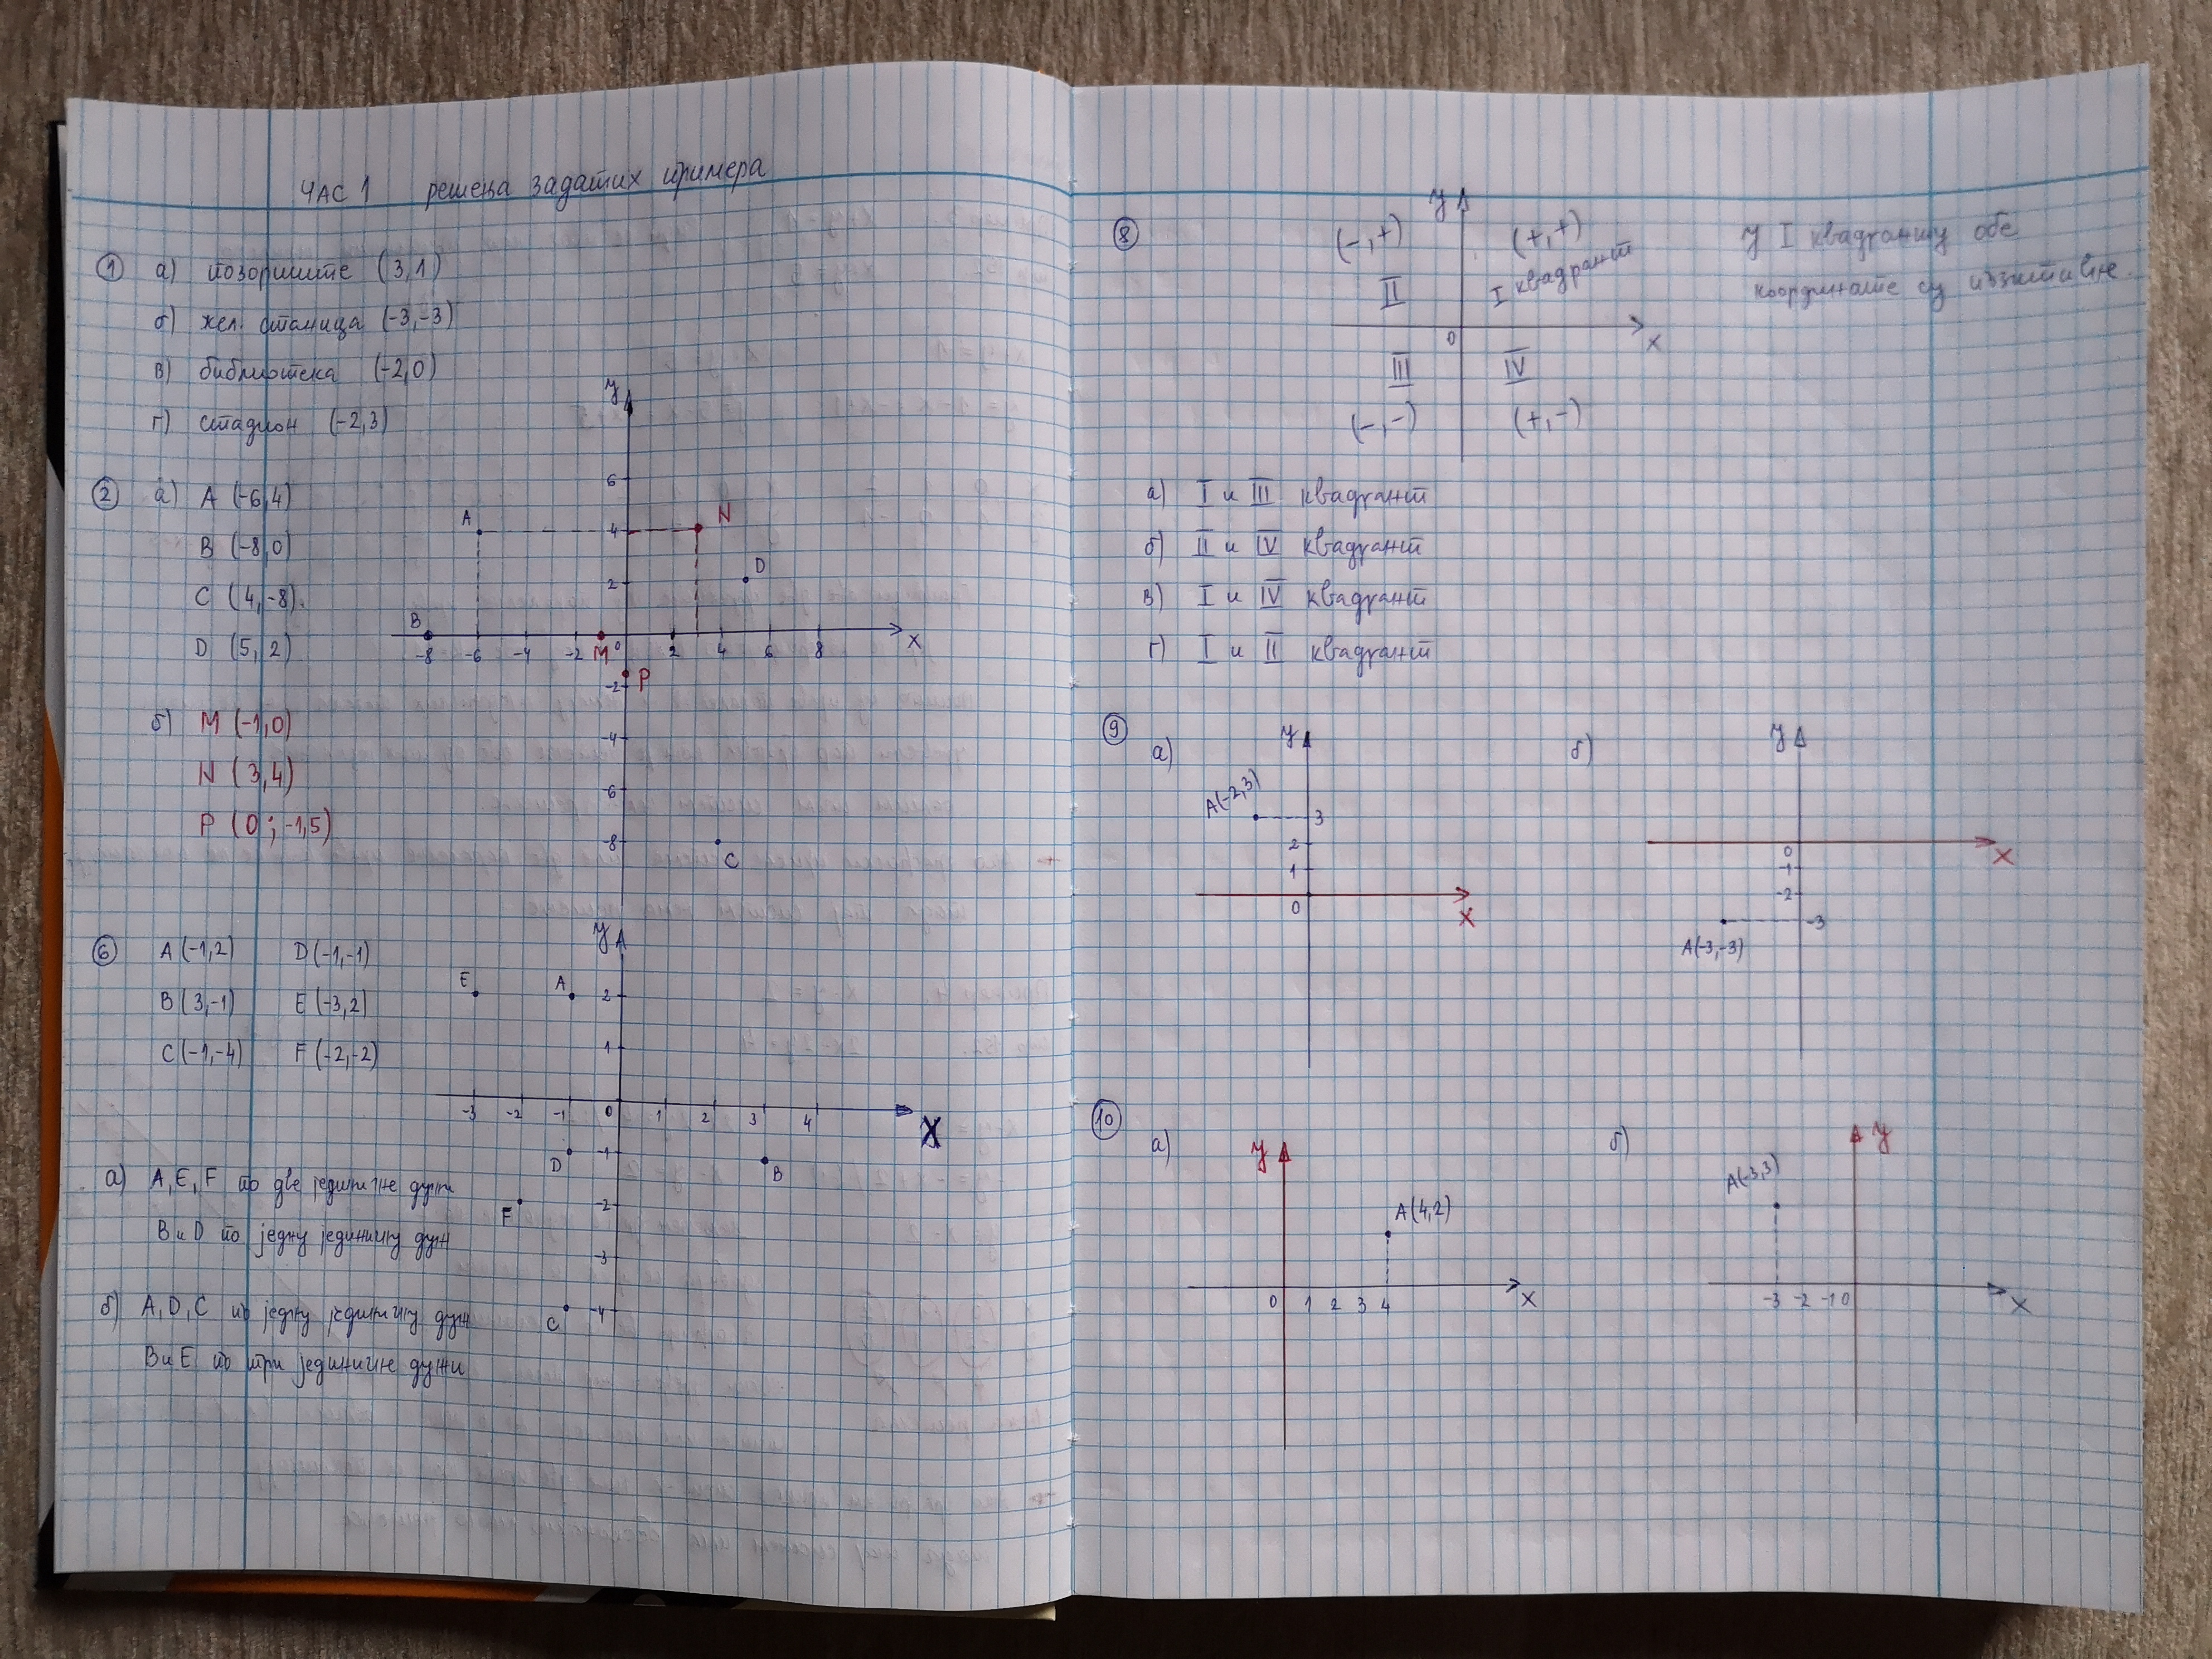 ЧАС 1 решења задатих примера
① а) позориште (3,1)
б) жел. станица (-3,-3)
в) библиотека (-2,0)
г) стадион (-2,3)
② а) A (-6,4)
B (-8,0)
C (4,-8)
D (5,2)
б) M (-1,0)
N (3,4)
P (0; -1,5)
y
6
A 4 N
2 D
B
-8 -6 -4 -2 M 0 2 4 6 8 x
-2 P
-4
-6
-8 C
⑥ A(-1,2) D(-1,-1)
B(3,-1) E(-3,2)
C(-1,-4) F(-2,-2)
y
E A 2
1
-3 -2 -1 0 1 2 3 4 X
D -1 B
F -2
-3
C -4
а) A, E, F по две јединичне дужи
B и D по једну јединичну дуж
б) A, D, C по једну јединичну дуж
B и E по три јединичне дужи
⑧ y
(-,+) (+,+)
II I квадрант
0 x
III IV
(-,-) (+,-)
У I квадранту обе
координате су позитивне.
а) I и III квадрант
б) II и IV квадрант
в) I и IV квадрант
г) I и II квадрант
⑨ а) y
A(-2,3) 3
2
1
0 x
б) y
0 x
-1
-2
-3
A(-3,-3)
⑩ а) y
A(4,2)
0 1 2 3 4 x
б) y
A(-3,3)
-3 -2 -1 0 x